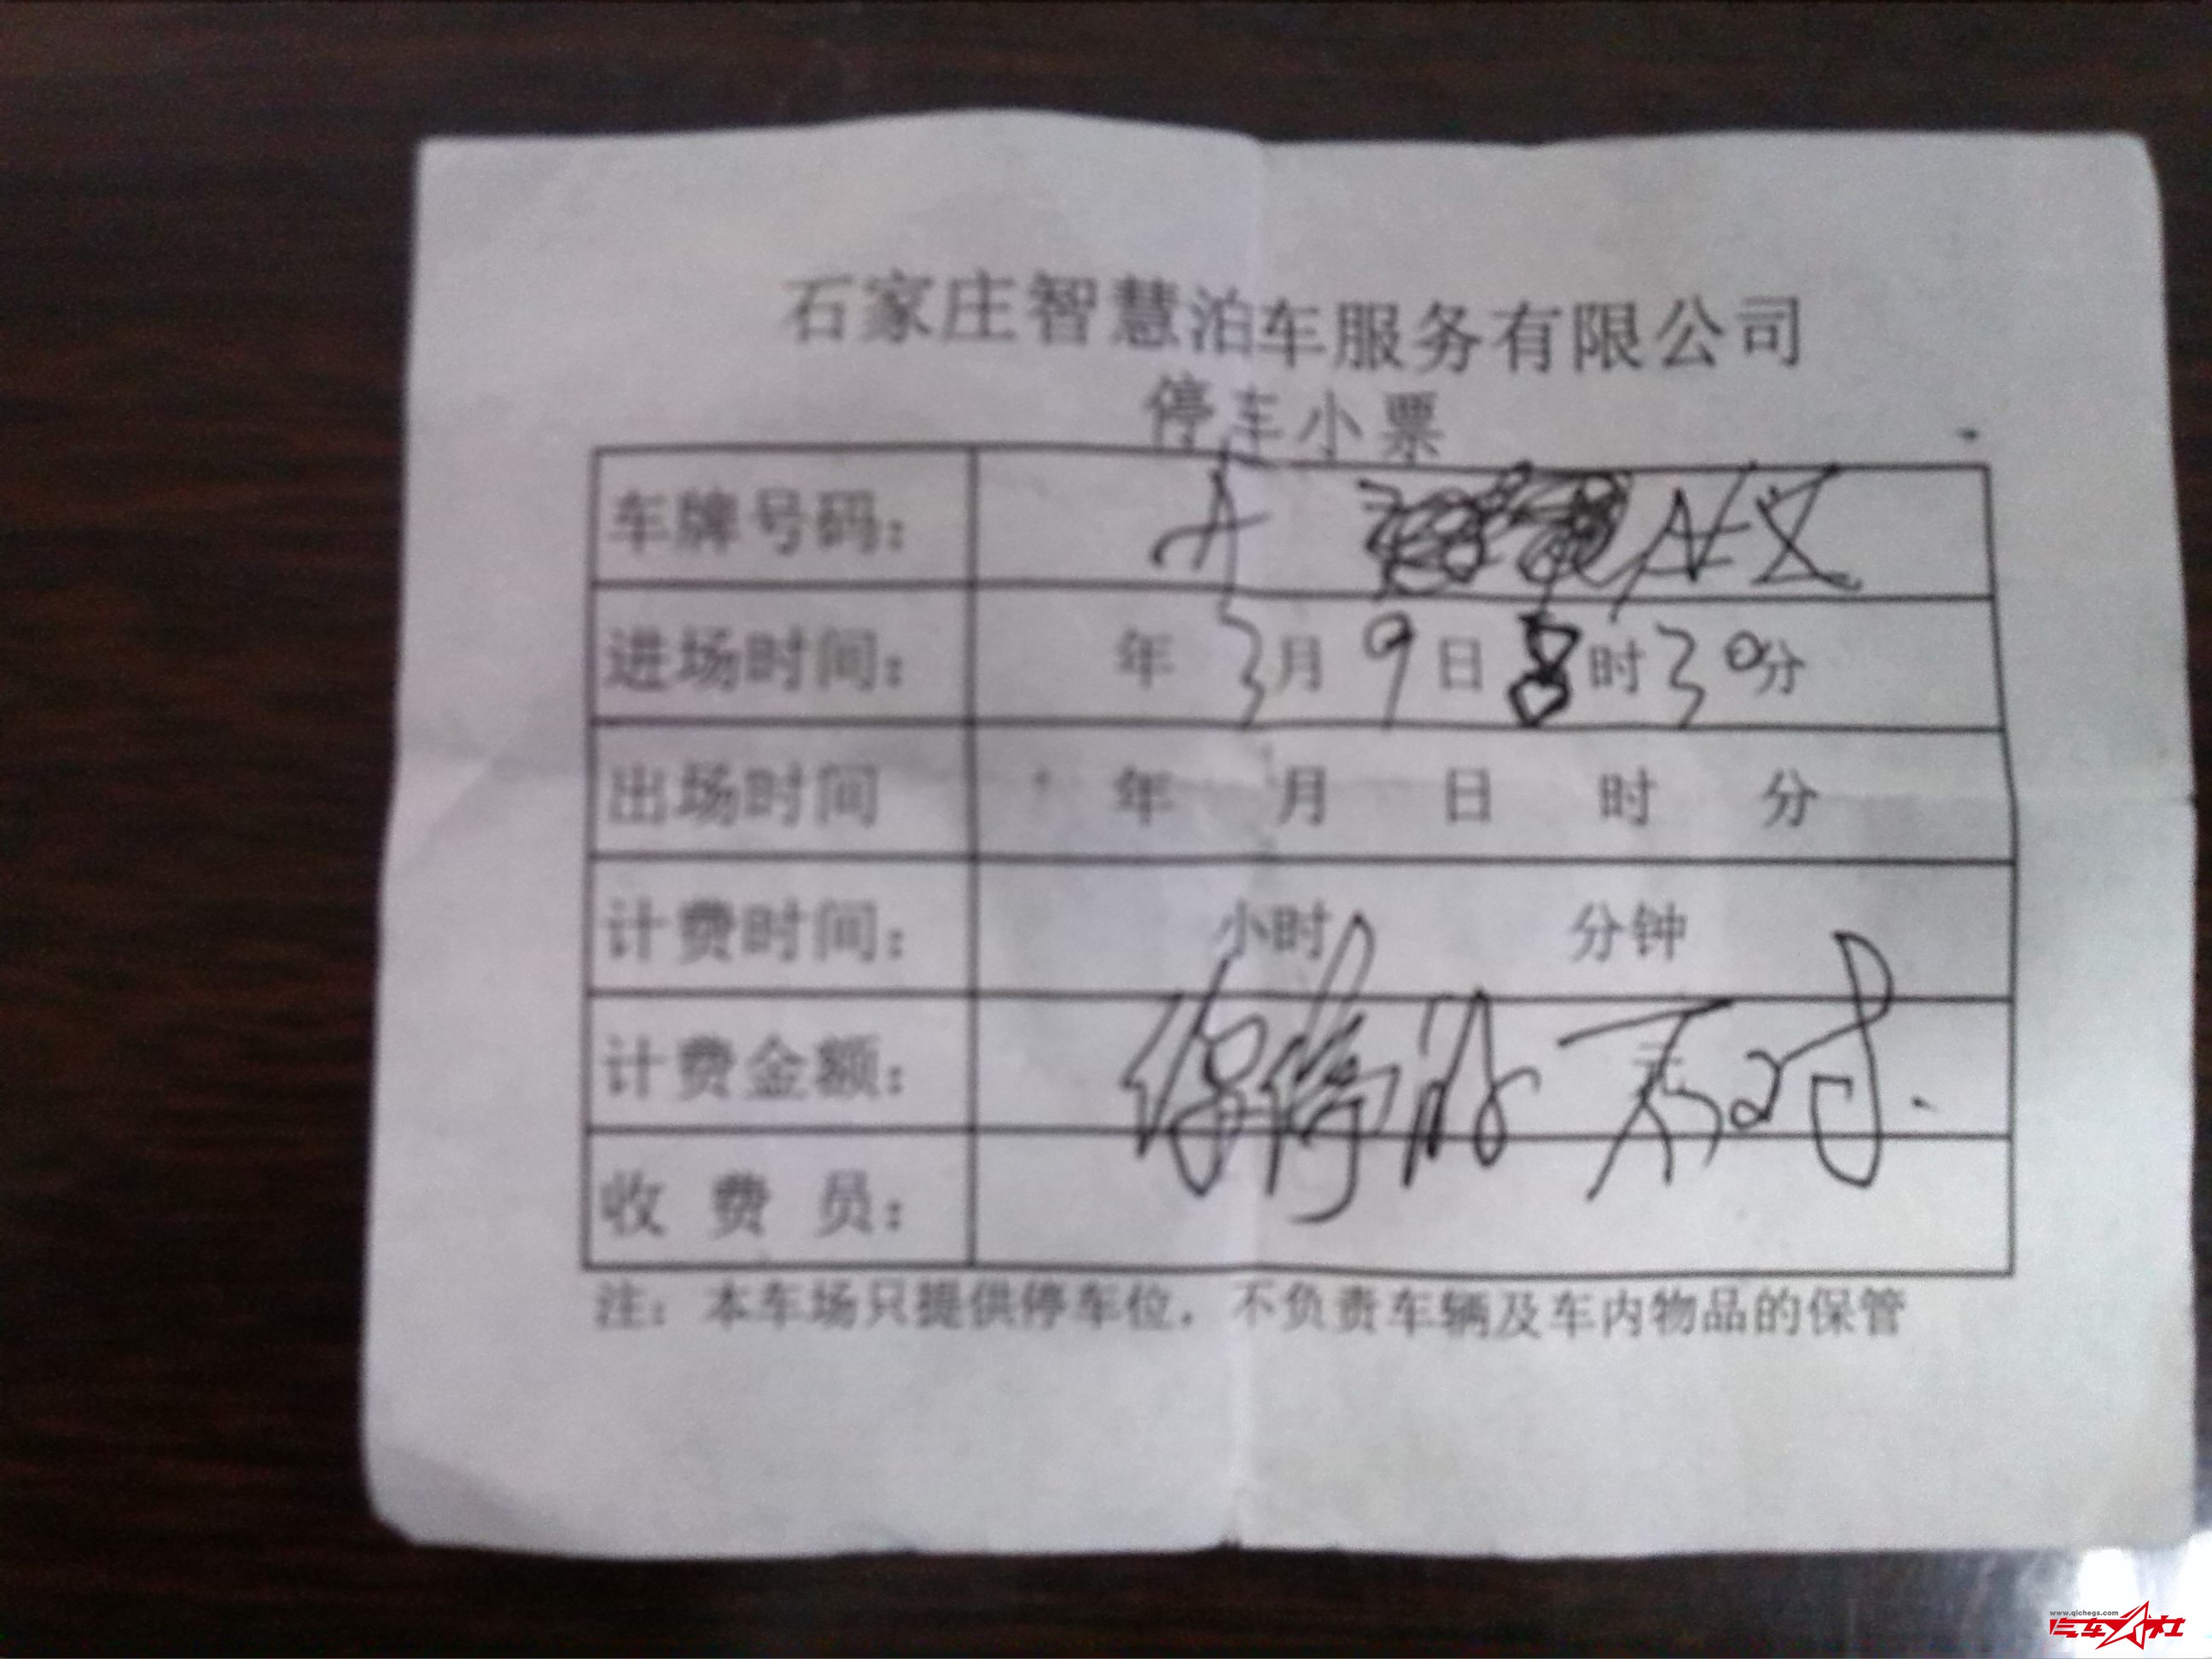 石家庄智慧泊车服务有限公司
停车小票
车牌号码： A
进场时间： 年 3月 9日 8时 30分
出场时间 年 月 日 时 分
计费时间： 小时 分钟
计费金额： 元
你停的不对.
收费员：
注：本车场只提供停车位，不负责车辆及车内物品的保管
www.qichegs.com
汽车公社